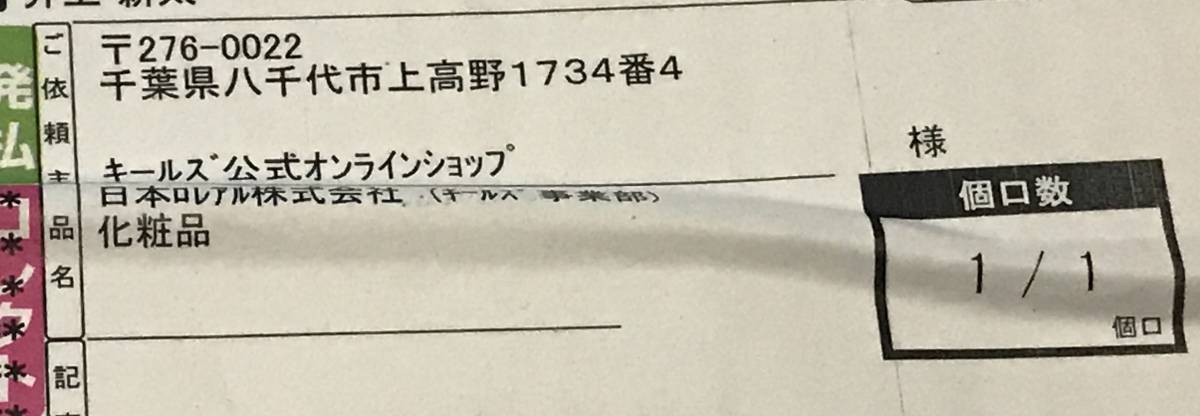 ご依頼主
〒276-0022
千葉県八千代市上高野1734番4
様
キールズ公式オンラインショップ
日本ロレアル株式会社 (キールズ 事業部)
品名
化粧品
個口数
1 / 1
個口
記
発払